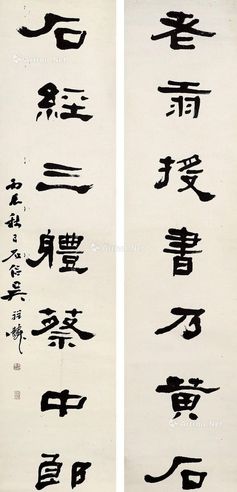 老翁授書乃黃石
石經三體蔡中郎
丙辰秋日石吳麟